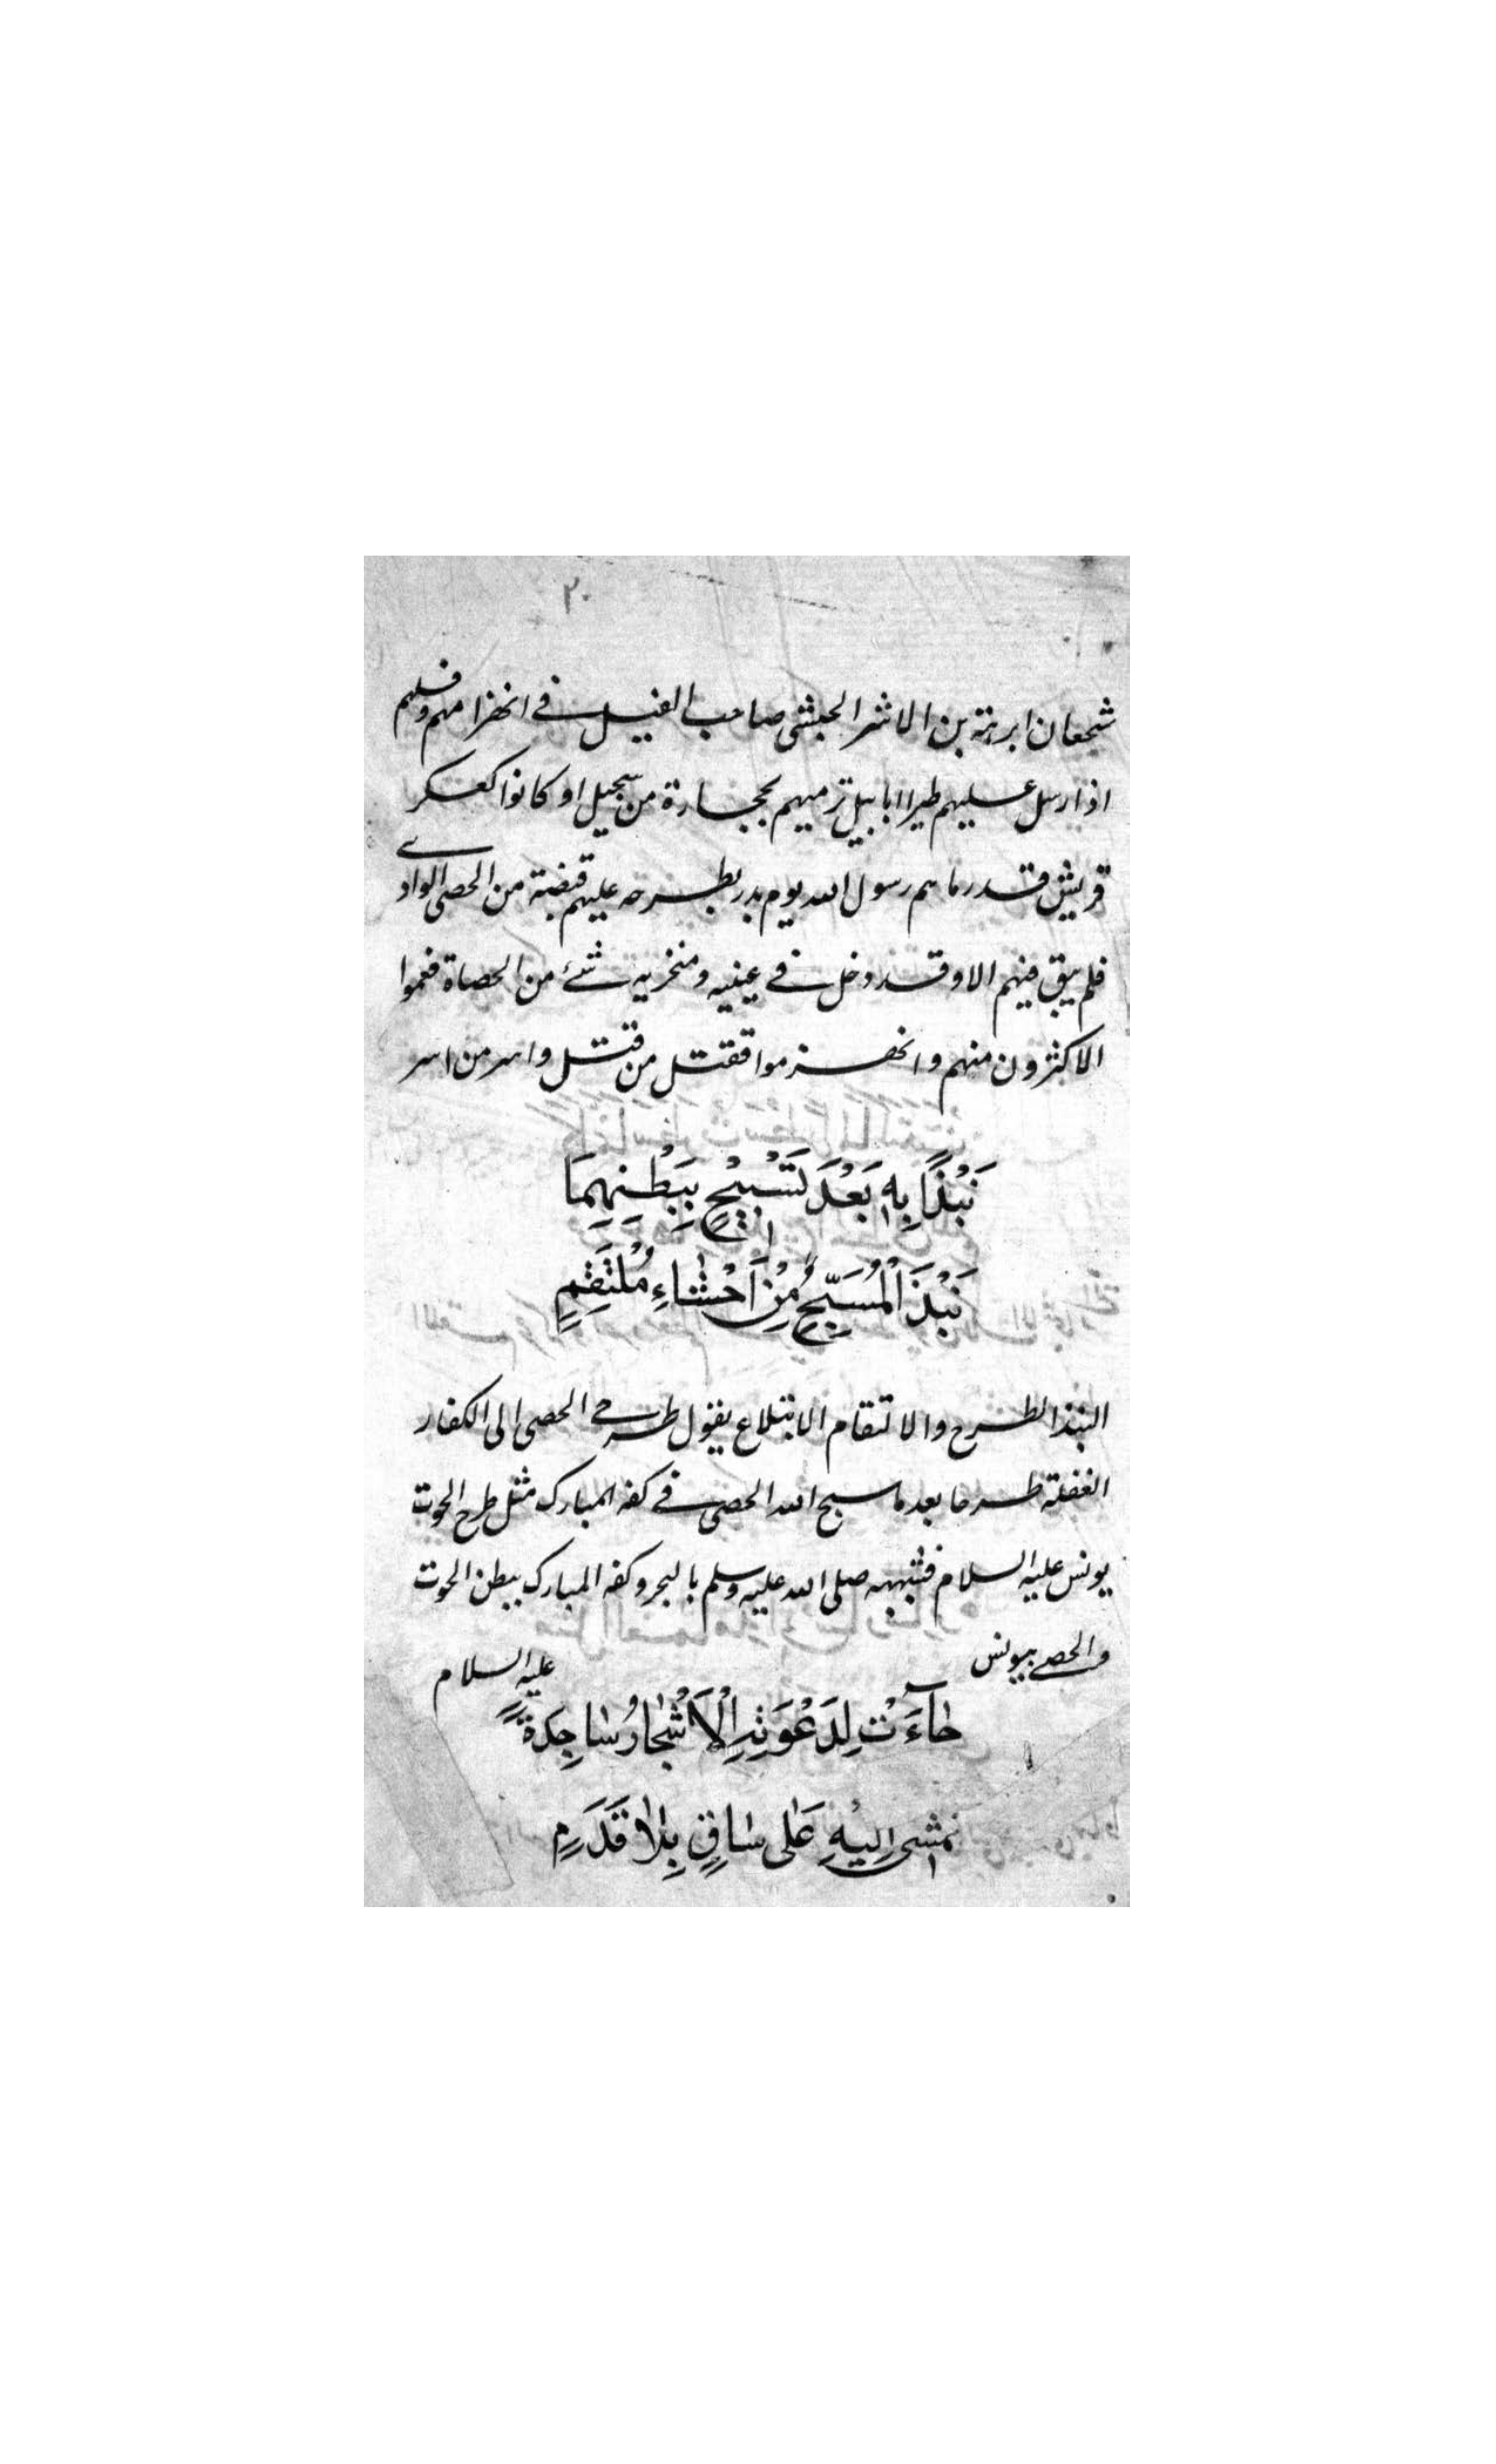 ٢٠
شجعان ابرهة بن الاشر الحبشى صاحب الفيل فى انهزامهم وفلهم
اذ ارسل عليهم طيرا ابابيل ترميهم بحجارة من سجيل او كانوا كعسكر
قريش قد رماهم رسول الله يوم بدر بطرحه عليهم قبضة من الحصى الوادى
فلم يبق فيهم الا وقد دخل فى عينيه ومنخريه شئ من الحصاة فعموا
الاكثرون منهم وانهزموا فقتل من قتل واسر من اسر
نَبْذًا بِهِ بَعْدَ تَسْبِيْحٍ بِبَطْنِهِمَا
نَبْذَ الْمُسَبِّحِ مِنْ اَحْشَاءِ مُلْتَقِمٍ
النبذ الطرح والالتقام الابتلاع يقول طرحى الحصى الى الكفار
طرحا بعد ما سبح الله الحصى فى كفه المبارك مثل طرح الحوت
يونس عليه السلام صلى الله عليه وسلم بالبحر وكفه المبارك ببطن الحوت
والحصى بيونس عليه السلام
جَآءَتْ لِدَعْوَتِهِ الْاَشْجَارُ سَاجِدَةً
تمشى اِلَيْهِ عَلٰى سَاقٍ بِلَا قَدَمٍ